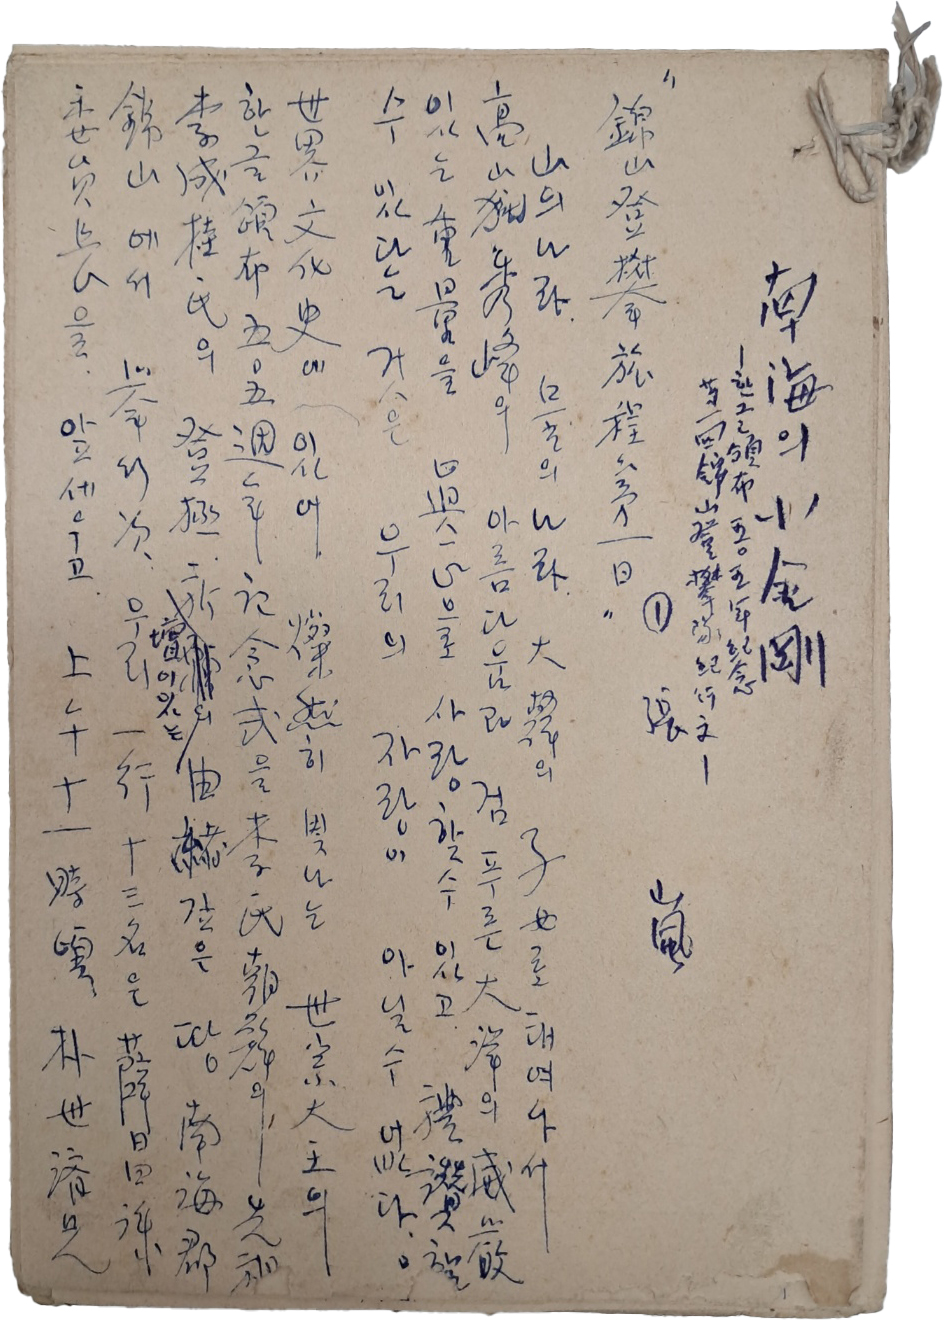 南海의 小金剛
―한글頒布 五0五年紀念
第一回錦山登攀隊紀行文―
① 張 嵐
"錦山登攀旅程第一日"
山의나라. 물의나라. 大韓의 子女로 태여나서
高山秀峰의 아름다움과 검푸른大洋의 威嚴
있는 重量을 마음으로 사랑할수있고. 禮讚할
수 있다는 거슨 우리의 자랑이 아닐수 없다.
世界文化史에 있어 燦然히 빛나는 世宗大王의
한글頒布 五0五週年 記念式을 李氏朝鮮의 先祖
李成桂氏의 登極 壇이있는 由緖깊은 땅 南海郡
錦山에서 擧行次. 우리 一行十三名은 薛
委員 을. 앞세우고. 上午十一時頃 朴世濟兄